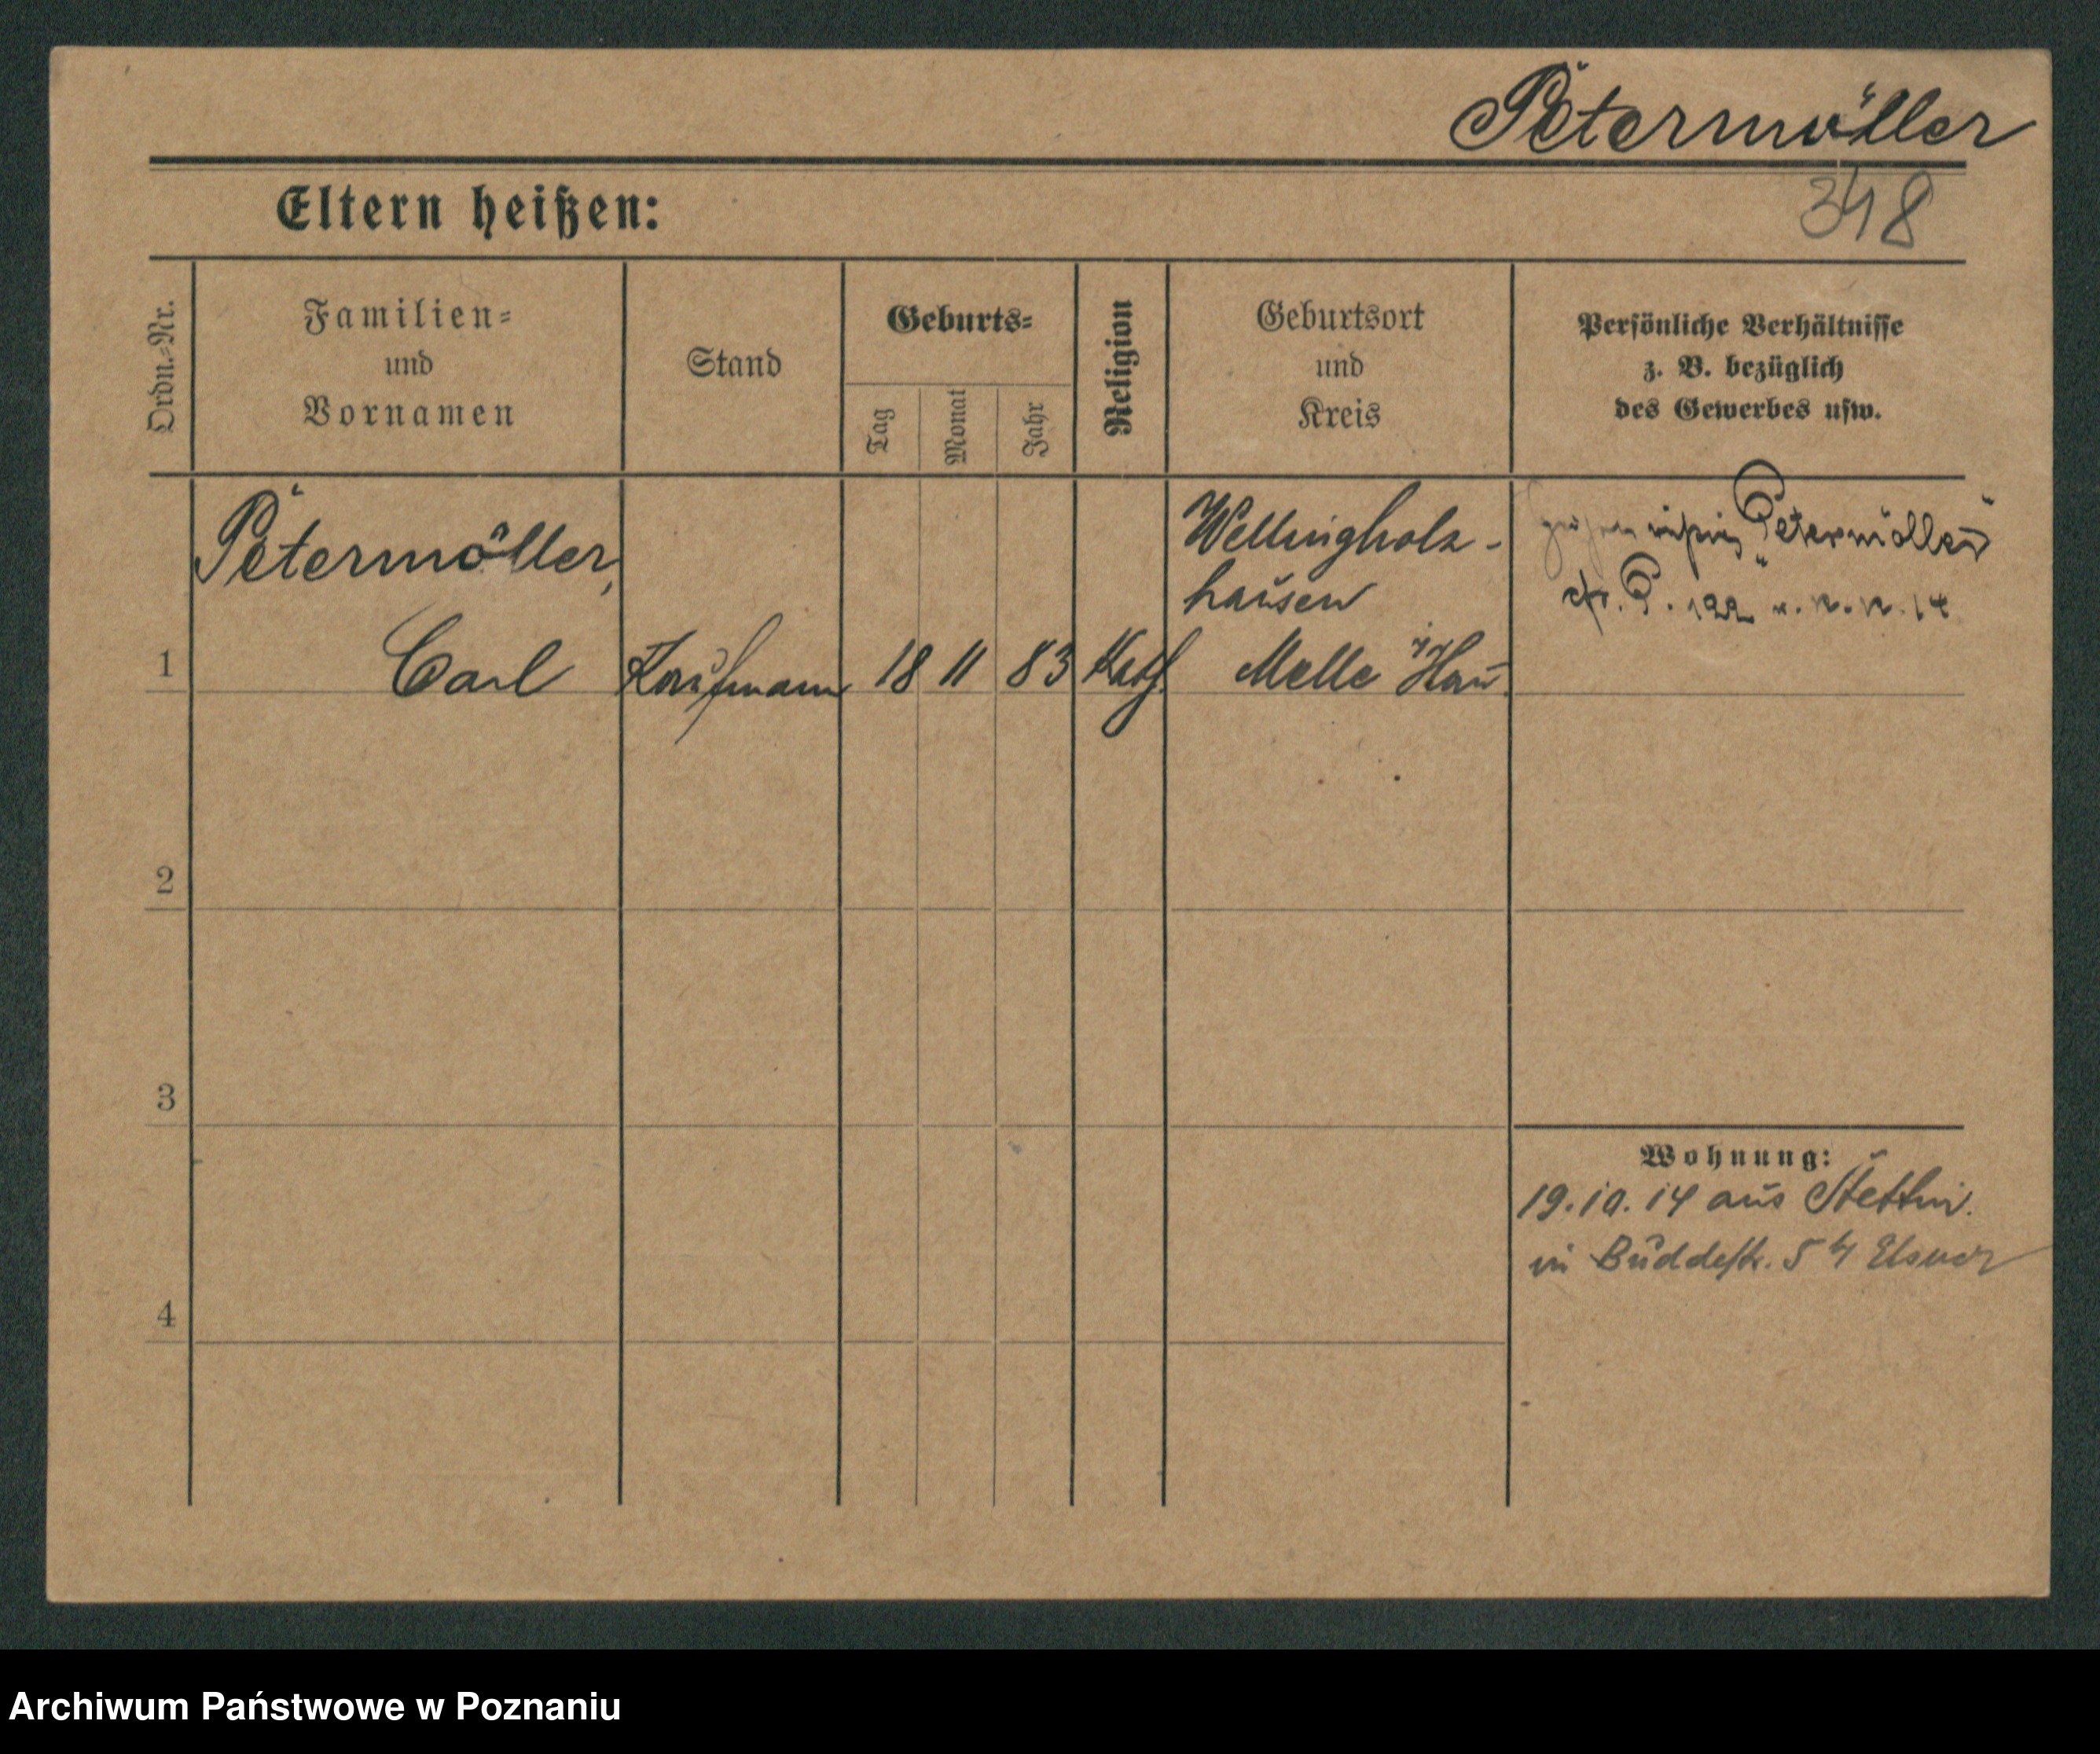 Petermöller
348
Eltern heißen:
Ordn.-Nr.
Familien-
und
Vornamen
Stand
Geburts-
Tag
Monat
Jahr
Religion
Geburtsort
und
Kreis
Persönliche Verhältnisse
z. B. bezüglich
des Gewerbes usw.
Petermöller,
1 Carl Kaufmann 18 11 83 Kath.
Wellingholz-
hausen
Melle Han.
"Petermöller"
cfr. P. 122
2
3
4
Wohnung:
19.10.14 aus Stettin.
in Buddestr. 5 Elsner
Archiwum Państwowe w Poznaniu